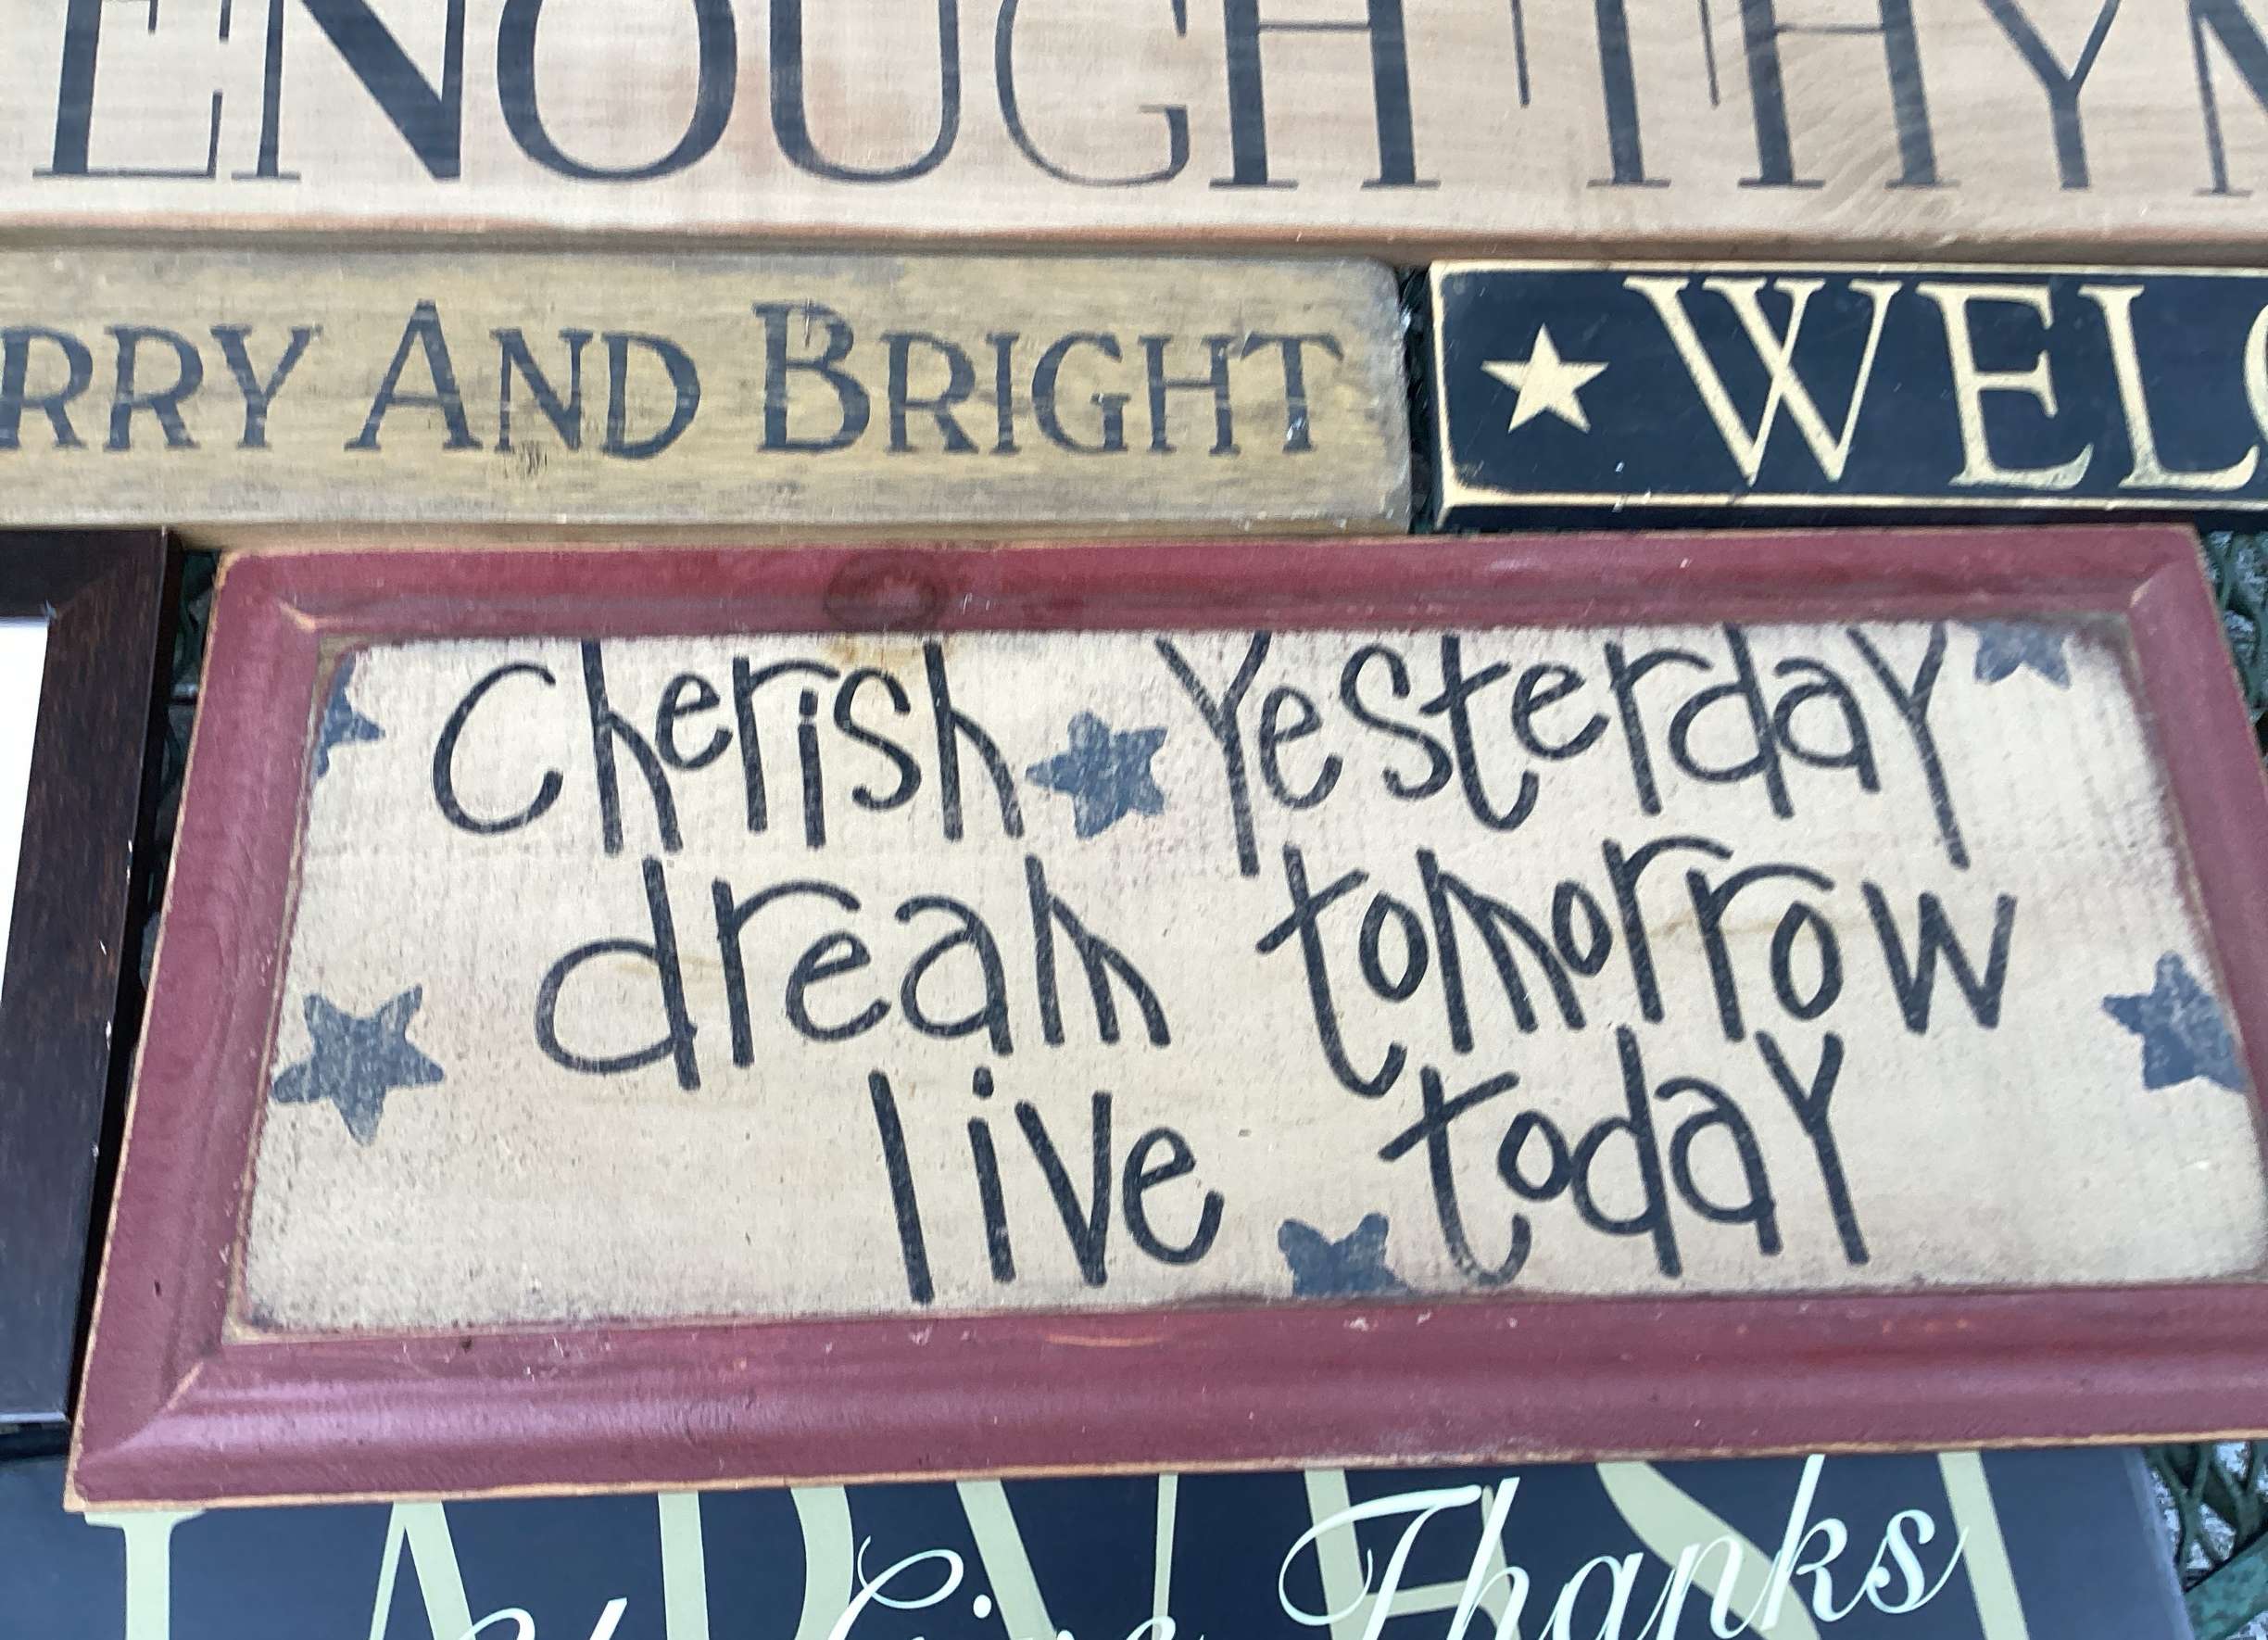 ENOUGH THYM
RRY AND BRIGHT
WELC
Cherish Yesterday
dream tomorrow
live today
Give Thanks